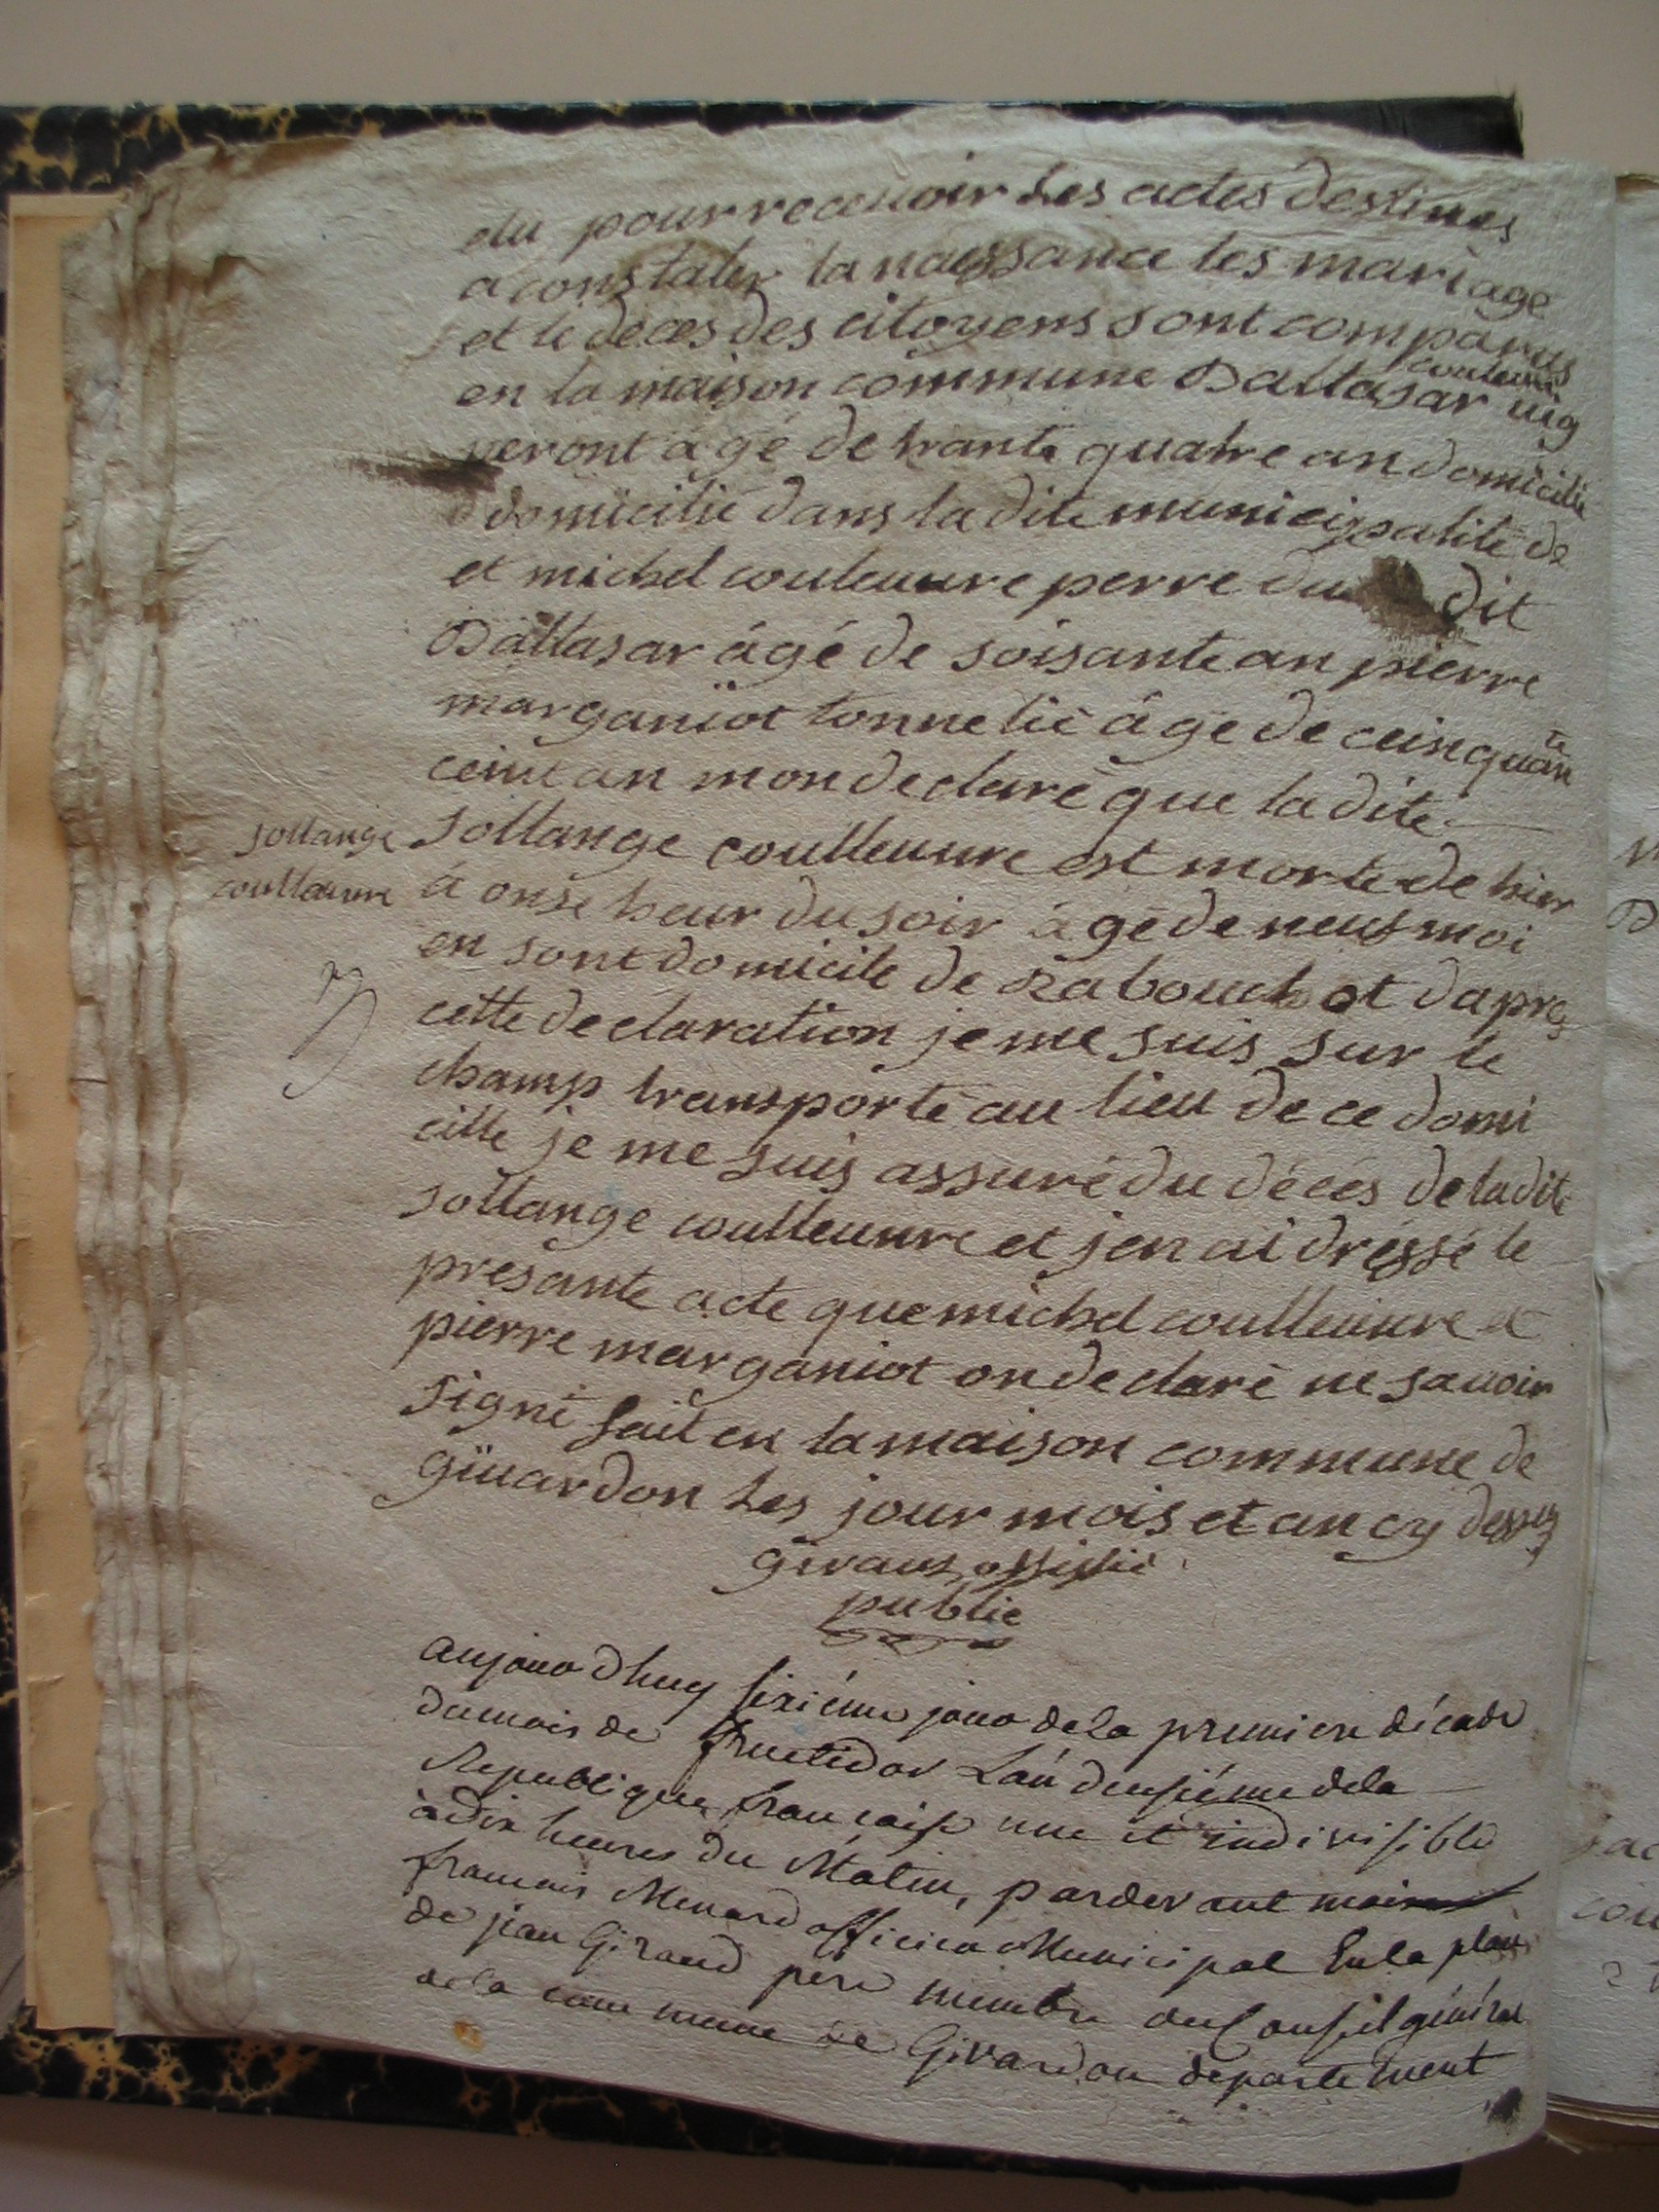 elu pour recevoir Les actes destines
a constater la naissance les mariage
et le deces des citoyens sont comparus
couleuvre
en la maison commune Baltasar vig
neront agé de trante quatre an domicilie
domicilié dans la dite municipalité de
et michel couleuvre perre du dit
Baltasar âgé de soisante an pierre
marganiot tonnelié âgé de ceinquante
ceint an mon declaré que la dite
sollange
Sollange coulleuvre est morte de hier
coulleuvre
à onse heur du soir agé de neuf moi
en sont domicile de et dapres
cette declaration je me suis sur le
champ transporté au lieu de ce domi
cille je me suis assuré du décés de la dite
sollange coulleuvre et jen ai dréssé le
presante acte que michel coulleuvre et
pierre marganiot on declaré ne savoir
signé fait en la maison commune de
givardon Les jour mois et an cy dessus
offissié
public
aujour dhuy sixiéme jour de la premiere décade
du mois de fructidor L'an deusiéme de la
Republique francaise une et indivisible
à dix heures du Matin, pardevant moi
francois Menard officier Municipal En la place
de jean Giraud pere membre du Conseil général
de la commune de Givardon departement